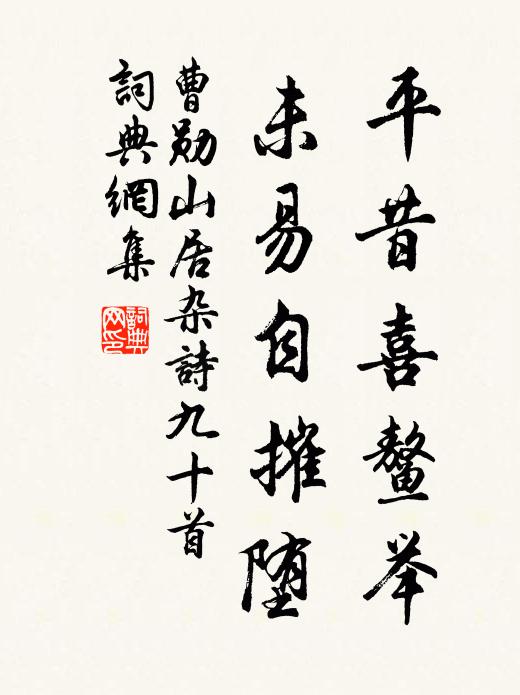 平昔喜鳌举
未易自摧堕
曹勛山居杂詩九十首
詞典網集
詞典网印